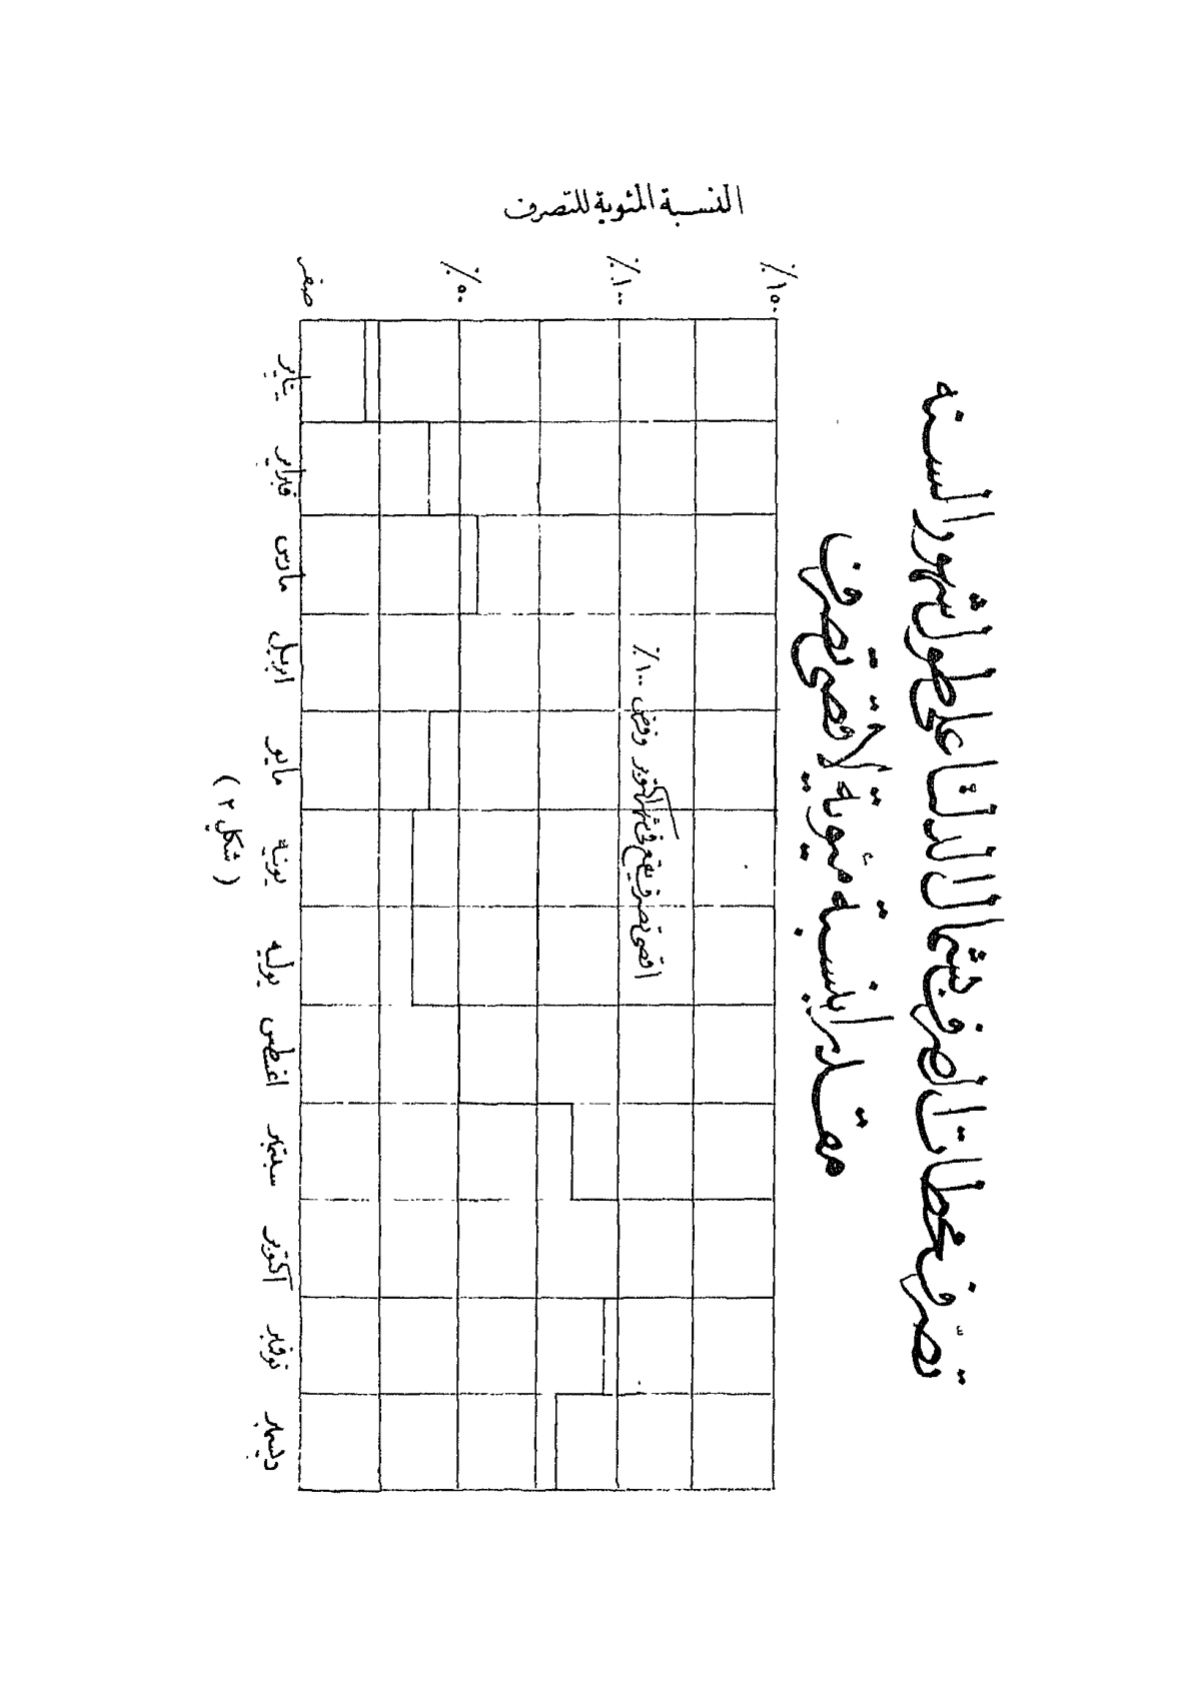 تصرف محطات الصرف بشمال الدلتا على طول شهور السنه
مقدرا بنسبة مئوية لأقصى تصرف
النسبة المئوية للتصرف
٪١٥٠
٪١٠٠
٪٥٠
صفر
اقصى تصرف يقع فى شهر اكتوبر وفرض ١٠٠٪
يناير
فبراير
مارس
ابريل
مايو
يونية
يوليه
اغسطس
سبتمبر
أكتوبر
نوفمبر
ديسمبر
( شكل ٢ )